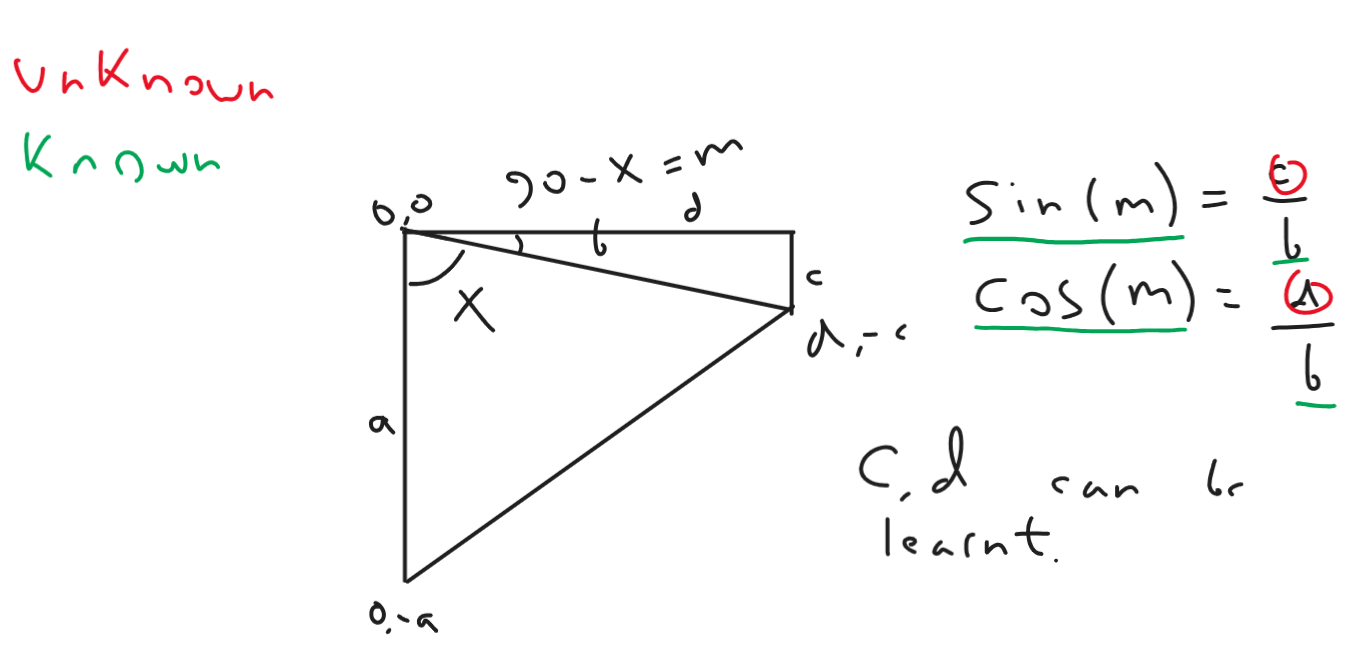 unknown
Known
90-x=m
0,0
d
b
c
x
d,-c
a
0,-a
Sin(m) = c/b
Cos(m) = d/b
C,d can be
learnt.